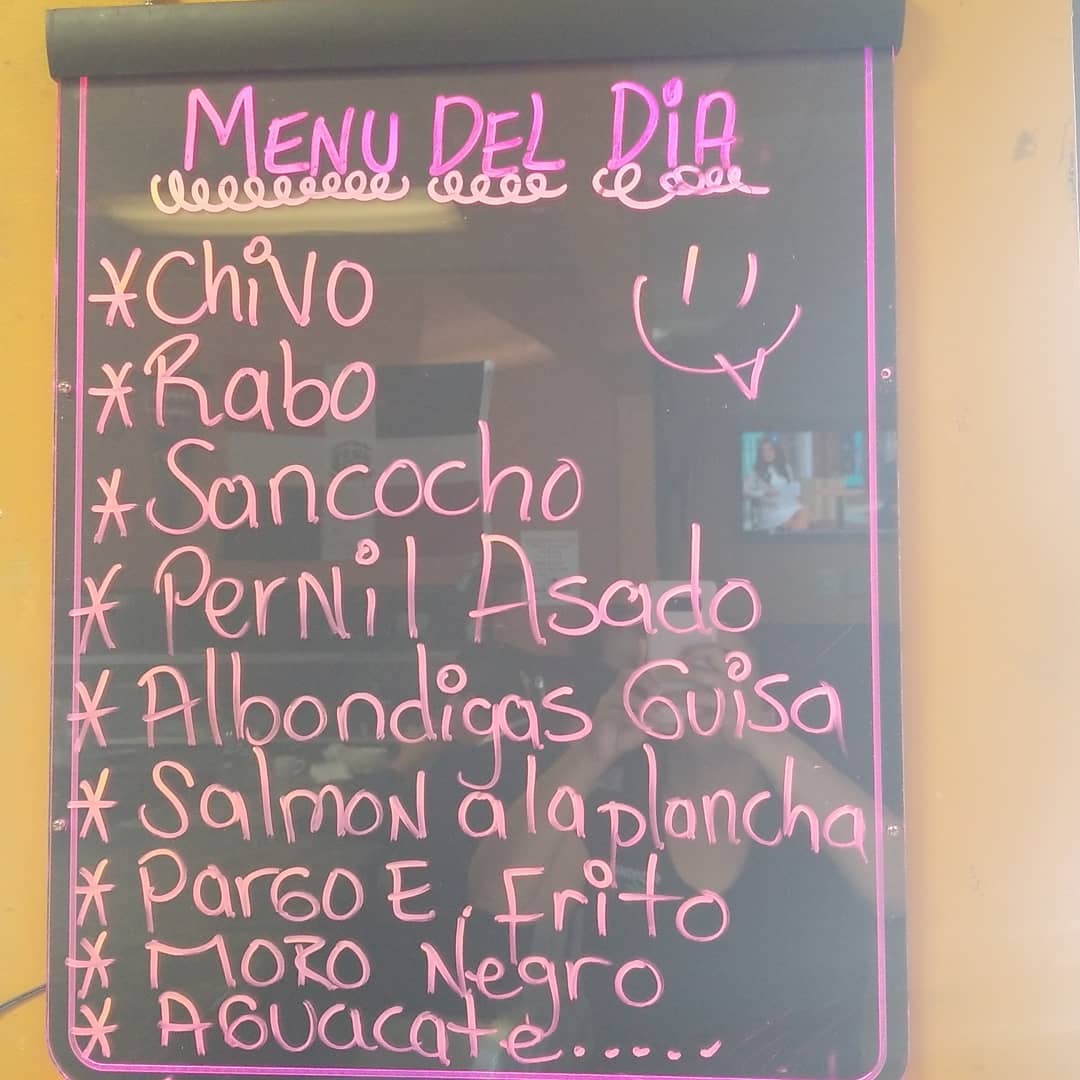 MENU DEL DiA
* ChiVO
* Rabo
* Sancocho
* PerNil Asado
* Albondigas Guisa
* SalmoN a la plancha
* ParGO E. Frito
* MORO Negro
* AGuacate.....